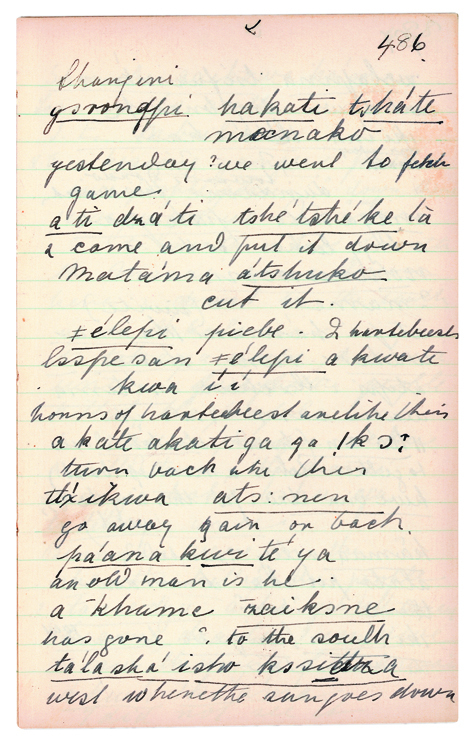 486
Khangini
gsrongpi hakati tshate
manako
yesterday ? we went to fetch
game.
a ti dza ti tshé tshé ke ta
I come and put it down
Matáma átshuko
cut it.
ǂélepi piebe. 2 hartebeests
ǂélepi a kwate
kwa íí
horns of hartebeest are like this
a kate akati ga ga
turn back like this
ats: nen
go away again or back.
páana kwi té ya
an old man is he.
a khame
has gone ? to the south
tálashá
west where the sun goes down